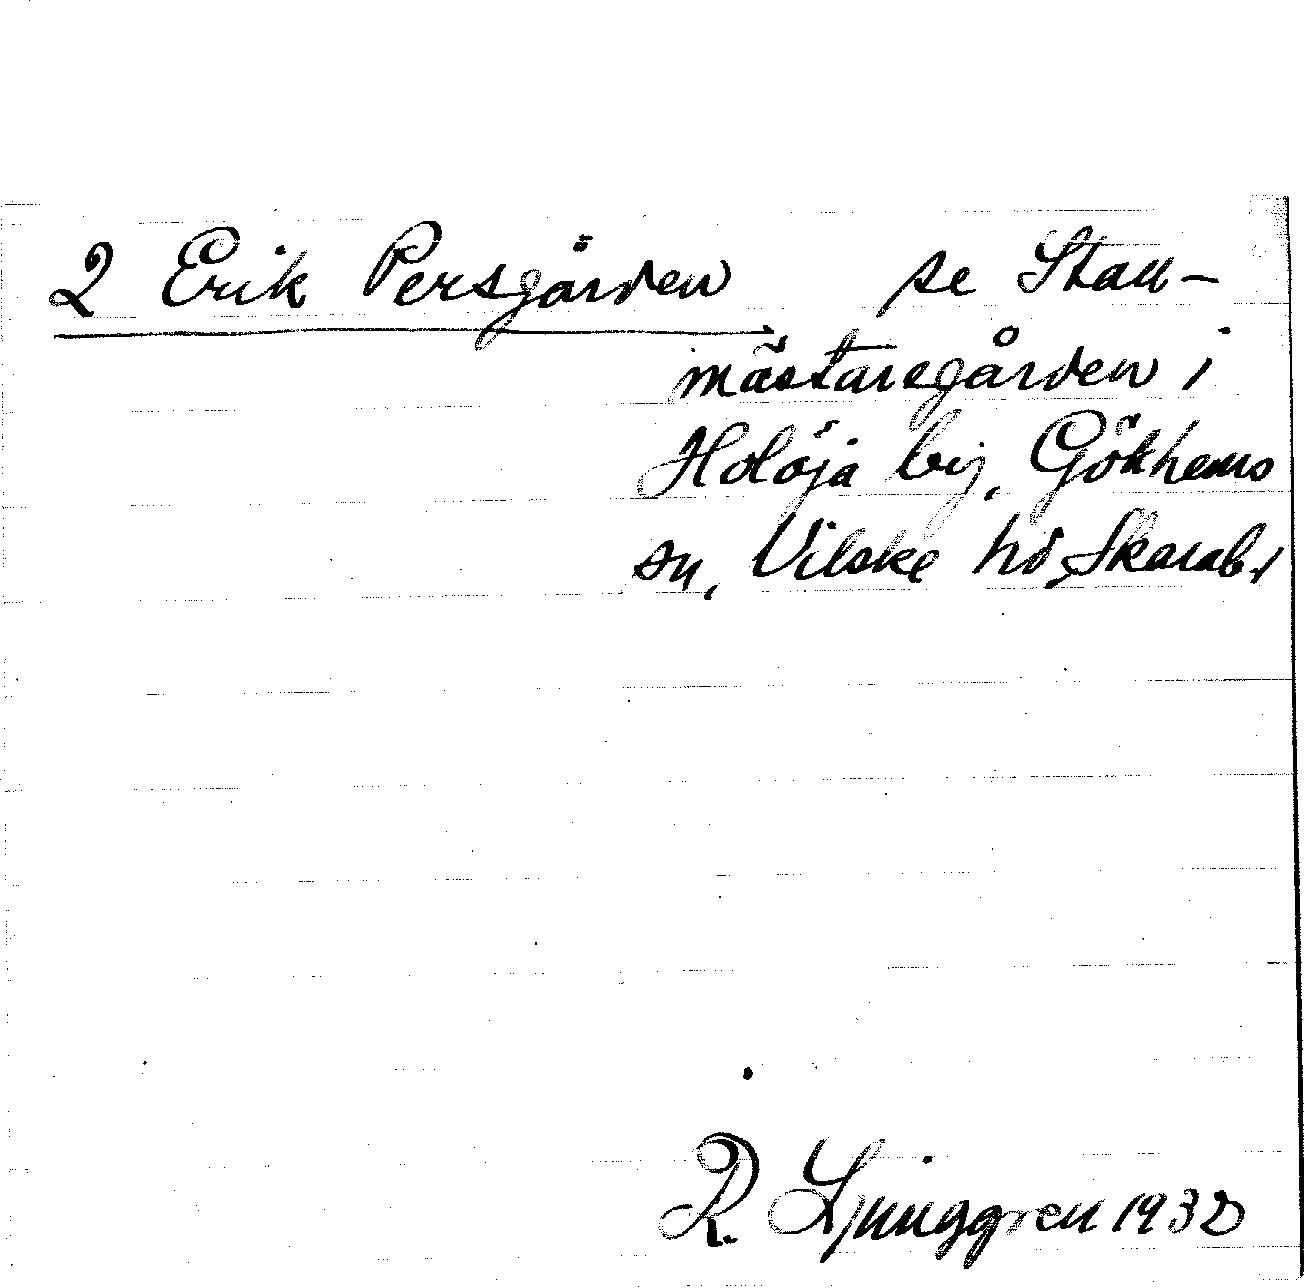 2 Erik Persgården se Stall-
mästaregården i
Holöja by, Gökhems
sn, Vilske hd, Skarab.l
R. Ljunggren 1930